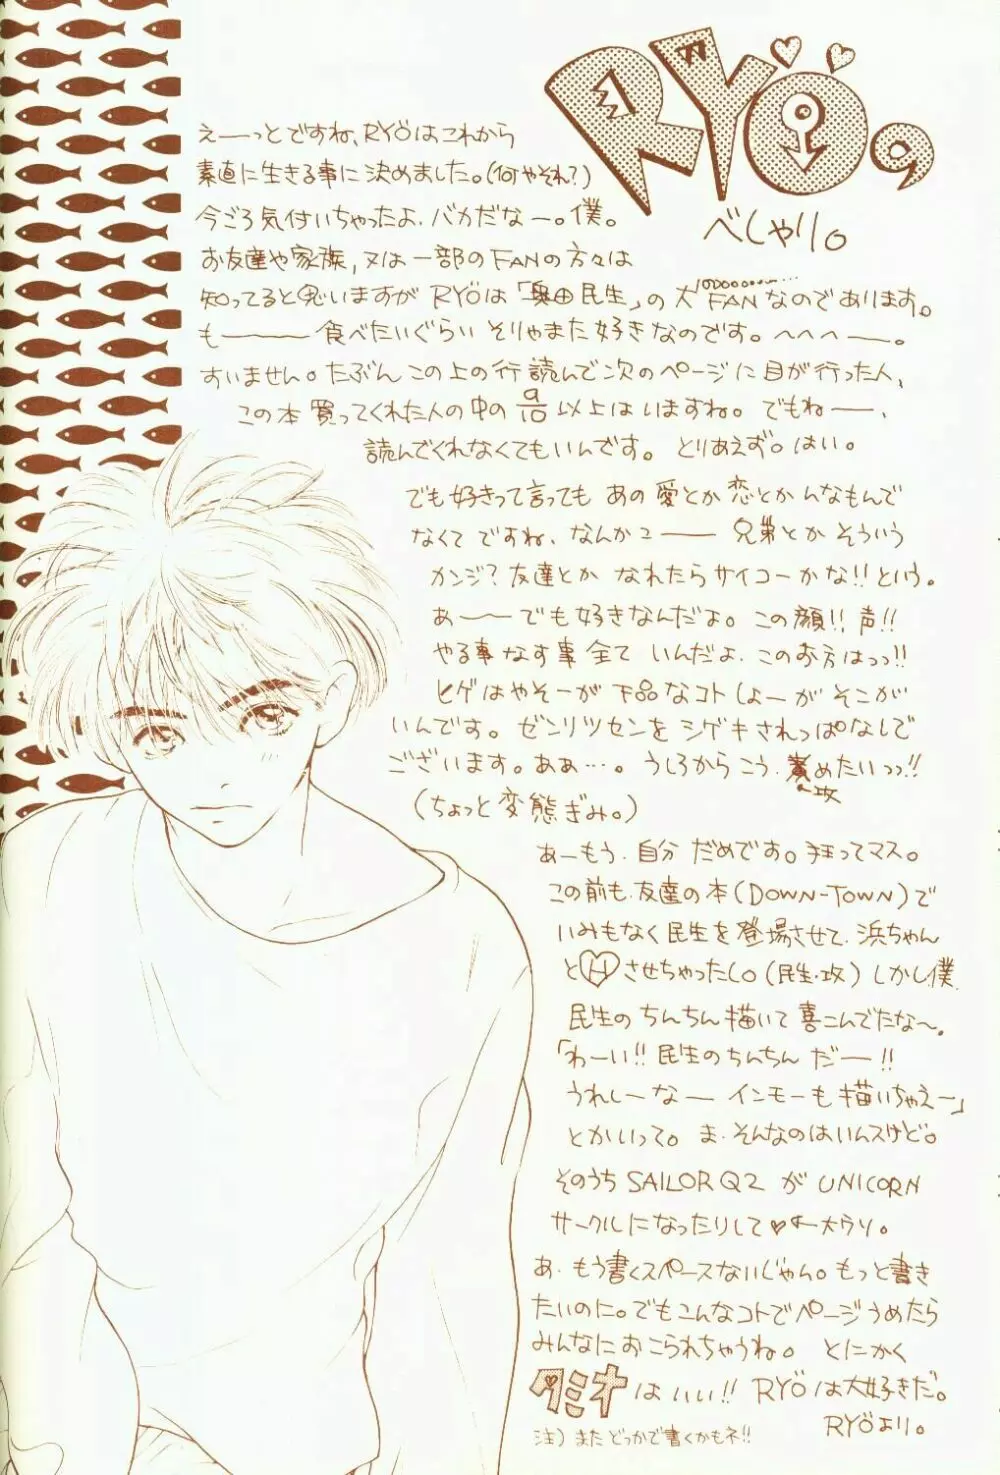 RYÖの
べしゃり。
えーーっとですね、RYÖはこれから
素直に生きる事に決めました。(何やそれ?)
今ごろ気付いちゃったよ、バカだなー。僕。
お友達や家族,又は一部のFANの方々は
知ってると思いますがRYÖは「奥田民生」の大FANなのであります。
も———食べたいぐらいそりゃまた好きなのです。へへへー。
すいません。たぶんこの上の行読んで次のページに目が行った人、
この本買ってくれた人の中の9/10以上はいますね。でもねー、
読んでくれなくてもいんです。とりあえず。はい。
でも好きって言ってもあの愛とか恋とかんなもんで
なくてですね、なんかこ——兄弟とかそういう
カンジ?友達とかなれたらサイコーかな!!という。
あ——でも好きなんだよ。この顔!!声!!
やる事なす事全ていんだよ、このお方はっっ!!
ヒゲはやそーが下品なコトしよーがそこが
いんです。ゼンリツセンをシゲキされっぱなしで
ございます。ああ…。うしろからこう、責めたいっっ!!
攻
(ちょっと変態ぎみ。)
あーもう、自分だめです。狂ってマス。
この前も、友達の本(DOWN-TOWN)で
いみもなく民生を登場させて、浜ちゃん
とHさせちゃったし。(民生・攻)しかし、僕、
民生のちんちん描いて喜こんでたな〜。
「わーい!!民生のちんちんだー!!
うれしーなーインモーも描いちゃえー」
とかいって。ま、そんなのはいんスけど。
そのうちSAILOR Q2がUNICORN
サークルになったりして♥←大ウソ。
あ、もう書くスペースないじゃん。もっと書き
たいのに。でもこんなコトでページうめたら
みんなにおこられちゃうね。とにかく
タミオはいい!!RYÖは大好きだ。
RYÖより。
注)またどっかで書くかもネ!!